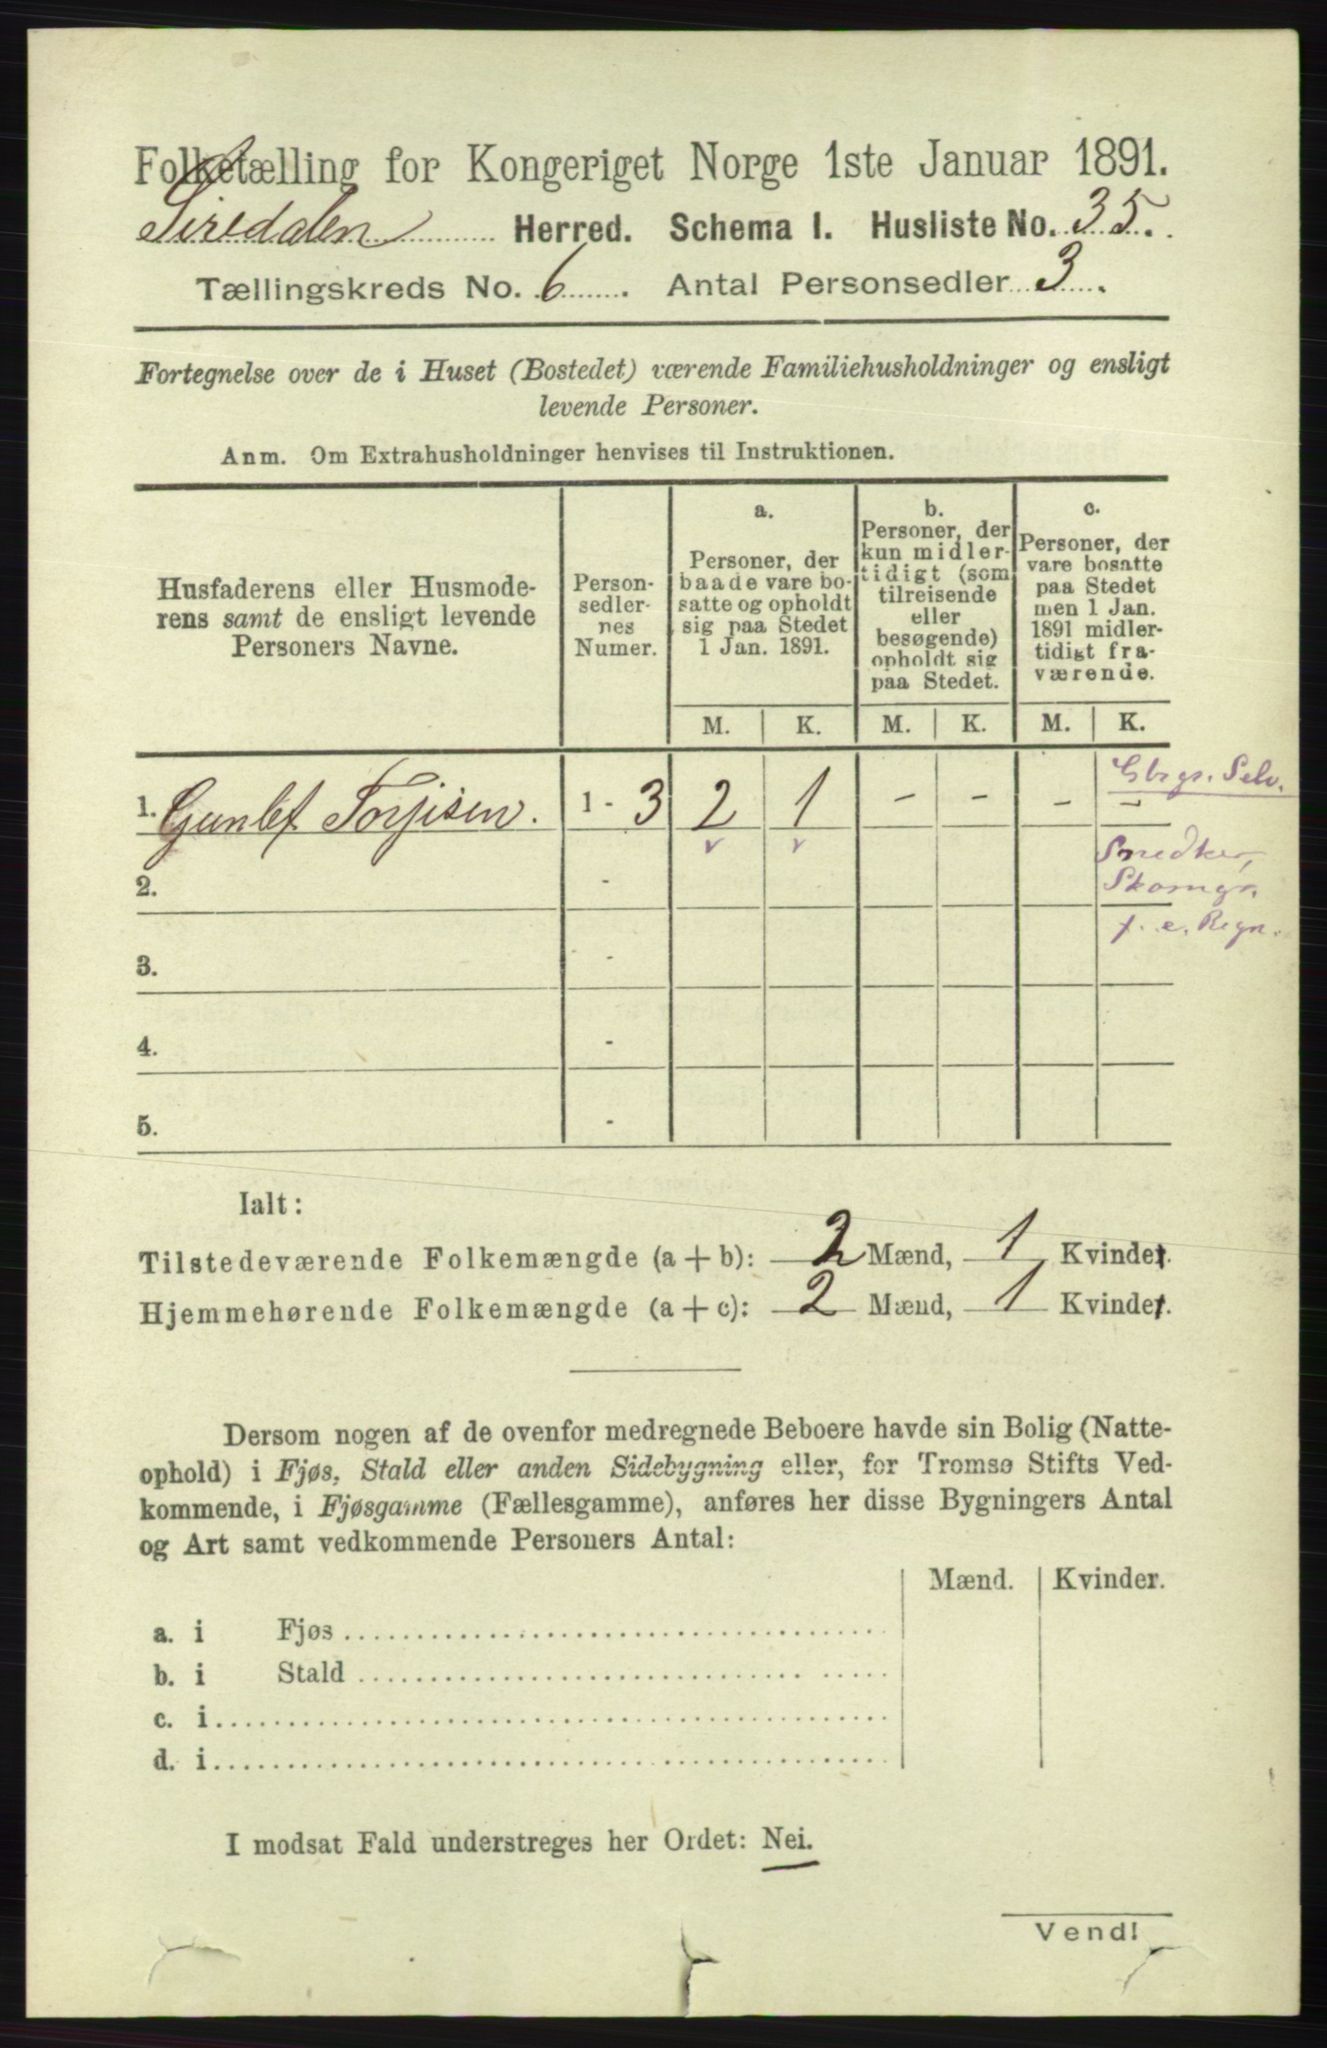 Folketælling for Kongeriget Norge 1ste Januar 1891.
Siredalen Herred. Schema I. Husliste No. 35.
Tællingskreds No. 6. Antal Personsedler 3.
Fortegnelse over de i Huset (Bostedet) værende Familiehusholdninger og ensligt
levende Personer.
Anm. Om Extrahusholdninger henvises til Instruktionen.
Husfaderens eller Husmode-
rens samt de ensligt levende
Personers Navne.
Person-
sedler-
nes
Numer.
a.
Personer, der
baade vare bo-
satte og opholdt
sig paa Stedet
1 Jan. 1891.
b.
Personer, der
kun midler-
tidigt (som
tilreisende
eller
besøgende)
opholdt sig
paa Stedet.
c.
Personer, der
vare bosatte
paa Stedet
men 1 Jan.
1891 midler-
tidigt fra-
værende.
M. K. M. K. M. K.
Gbrgr. Selv.
1. Gunlef Torjisen. 1 - 3 2 1 - - - -
v v
Snedker,
2. - Skomgr.
f. e. Regn.
3. -
4. -
5. -
Ialt:
Tilstedeværende Folkemængde (a + b): 2 Mænd, 1 Kvinder.
Hjemmehørende Folkemængde (a + c): 2 Mænd, 1 Kvinder.
Dersom nogen af de ovenfor medregnede Beboere havde sin Bolig (Natte-
ophold) i Fjøs, Stald eller anden Sidebygning eller, for Tromsø Stifts Ved-
kommende, i Fjøsgamme (Fællesgamme), anføres her disse Bygningers Antal
og Art samt vedkommende Personers Antal:
Mænd. Kvinder.
a. i Fjøs
b. i Stald
c. i
d. i
I modsat Fald understreges her Ordet: Nei.
Vend!